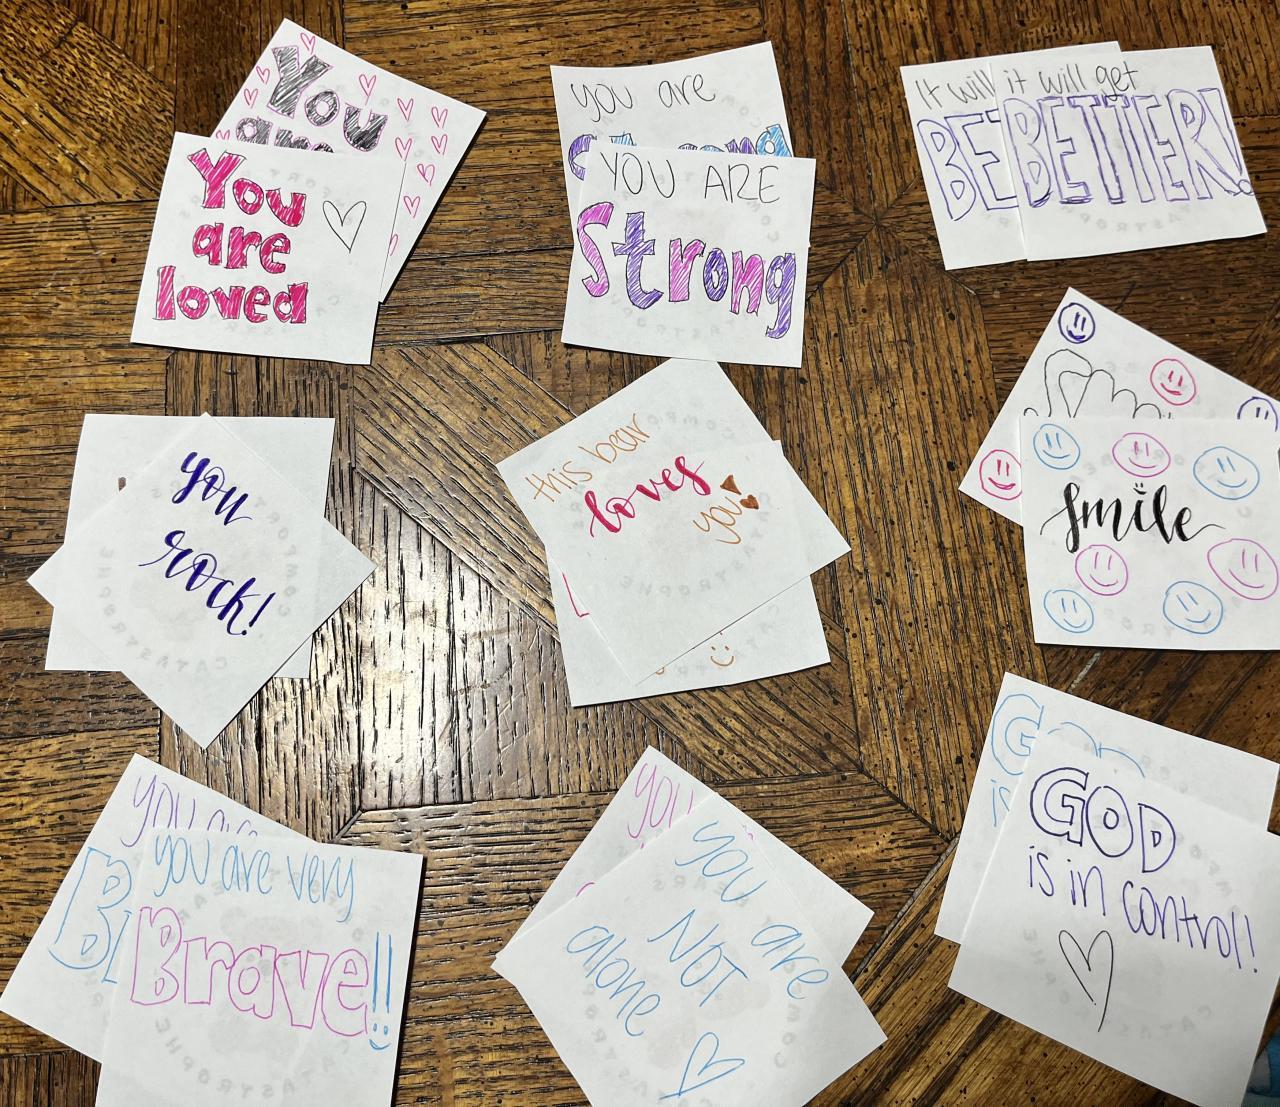 You
are
You
are
loved
you are
Strong
YOU ARE
Strong
It will
BE
it will get
BETTER!
you
rock!
this bear
loves
you
L
smile
you are
B
you are very
Brave!!
you
you are
NOT
alone
GO
is
GOD
is in control!
COMFORT
CATASTROPHE